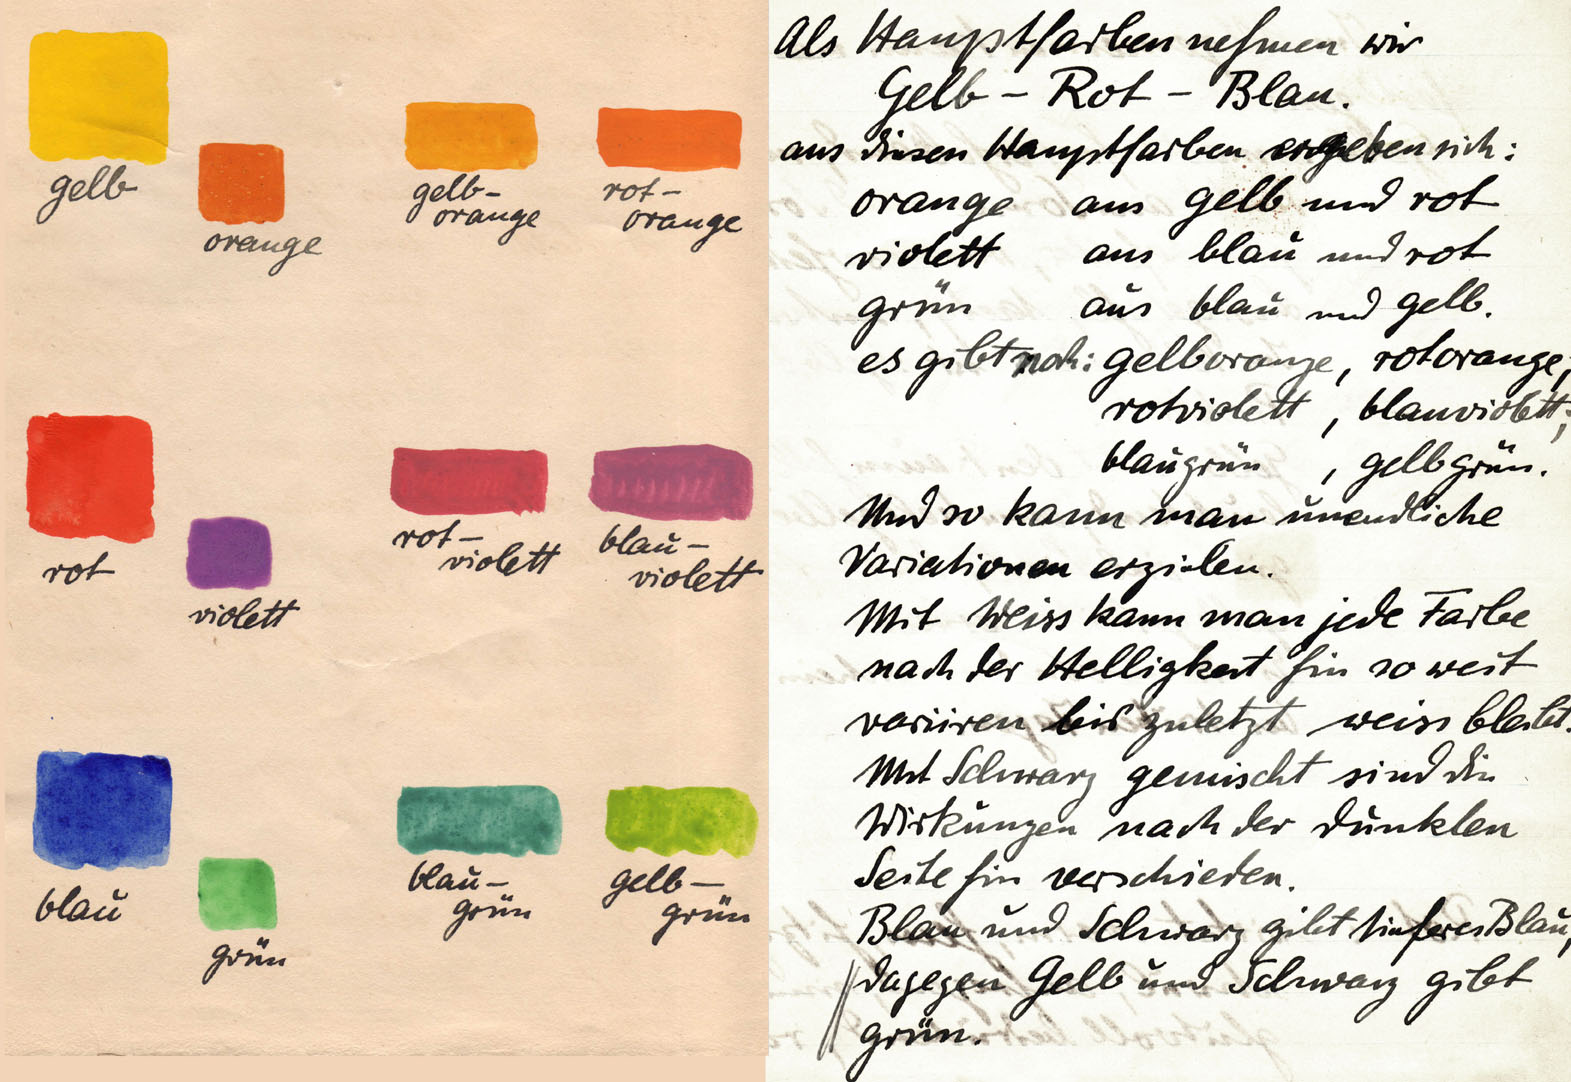 gelb
orange
gelb-
orange
rot-
orange
rot
violett
rot-
violett
blau-
violett
blau
grün
blau-
grün
gelb-
grün
Als Hauptfarben nehmen wir
Gelb - Rot - Blau.
aus diesen Hauptfarben ergeben sich:
orange aus gelb und rot
violett aus blau und rot
grün aus blau und gelb.
es gibt noch: gelborange, rotorange,
rotviolett, blauviolett;
blaugrün, gelbgrün.
Und so kann man unendliche
Variationen erzielen.
Mit Weiss kann man jede Farbe
nach der Helligkeit hin so weit
variiren bis zuletzt weiss bleibt.
Mit Schwarz gemischt sind die
Wirkungen nach der dunklen
Seite hin verschieden.
Blau und Schwarz gibt tieferes Blau,
dagegen Gelb und Schwarz gibt
grün.